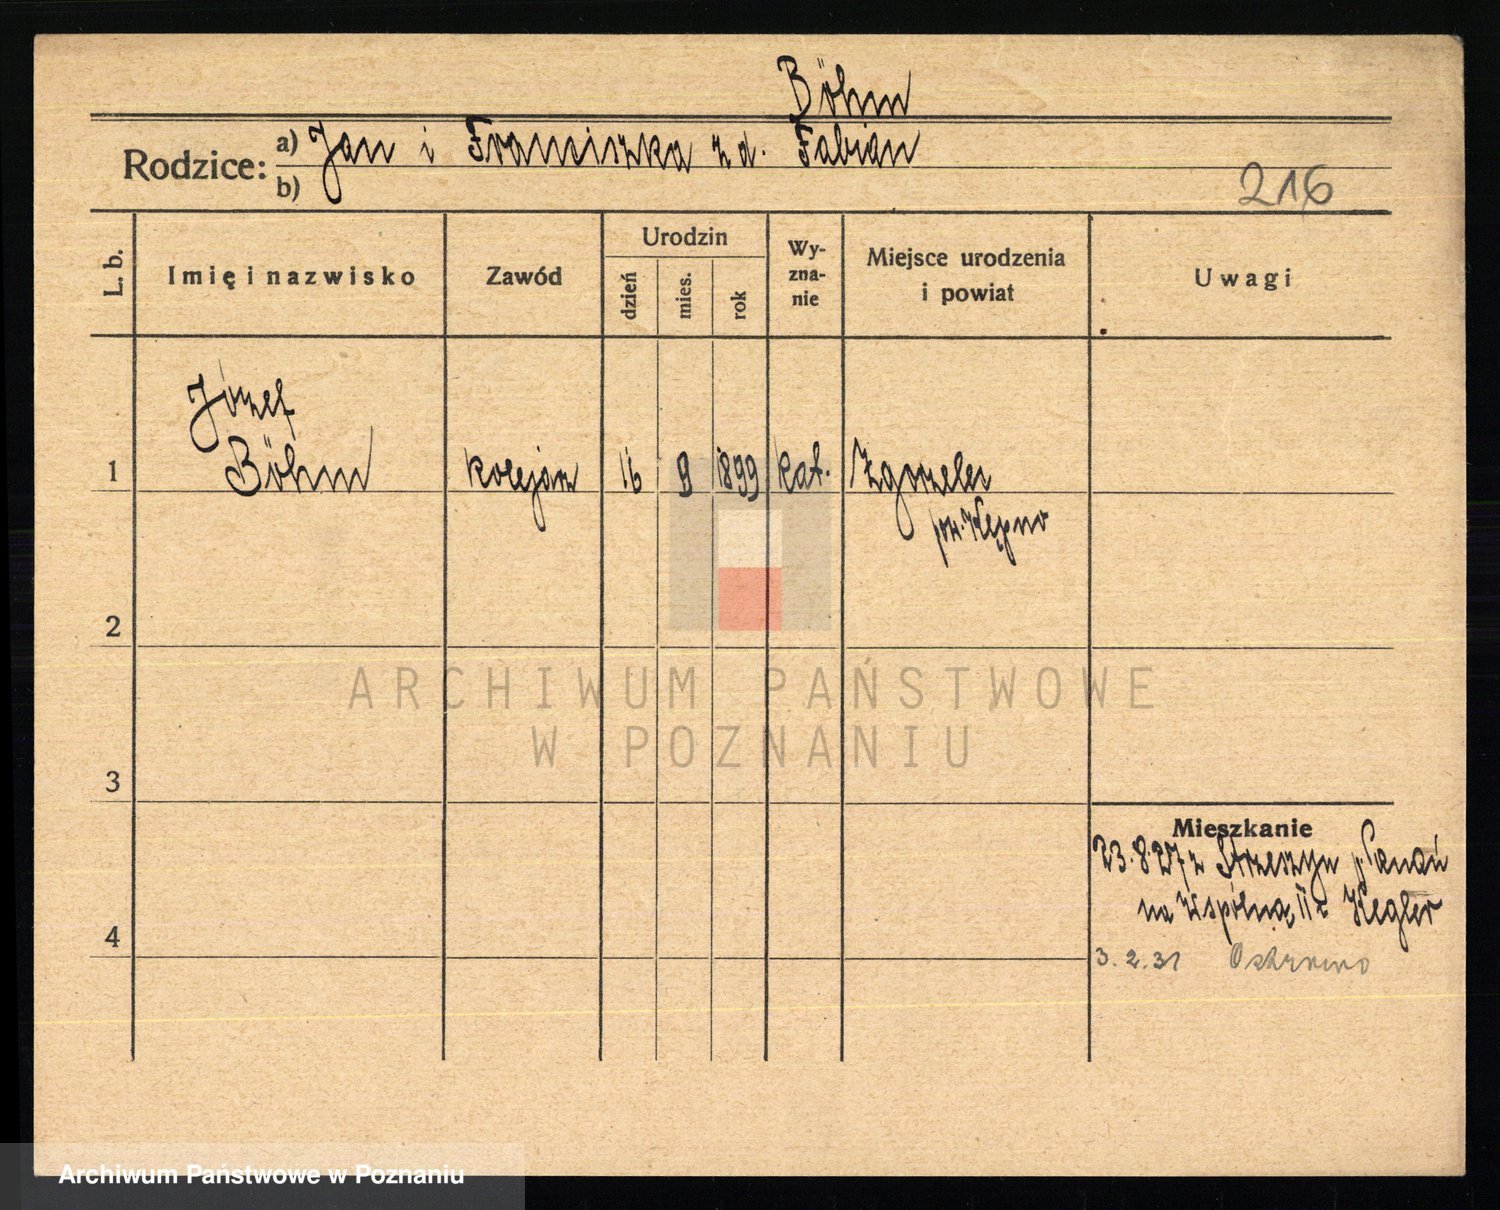 Böhm
Rodzice: a) Jan i Franciszka z d. Fabian
b)
216
L. b.
Imię i nazwisko
Zawód
Urodzin
dzień
mies.
rok
Wy-
zna-
nie
Miejsce urodzenia
i powiat
Uwagi
1
Józef
Böhm
kolejarz
16
9
1899
kat.
Zgorzelec
pow. Kępno
2
3
4
Mieszkanie
23.8.27 z Strzeszyn p. Poznań
na Wspólną 11 z Kegler
3.2.31
ARCHIWUM PAŃSTWOWE
W POZNANIU
Archiwum Państwowe w Poznaniu